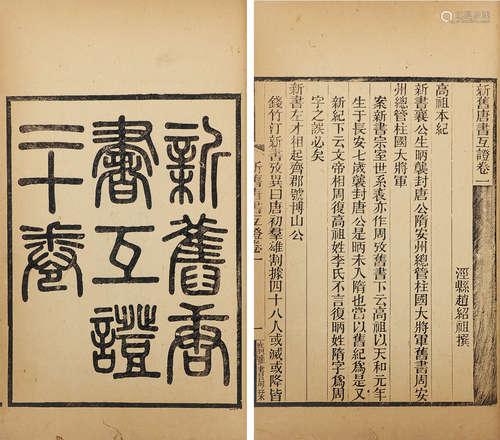 新舊唐
書互證
二十卷
新舊唐書互證卷一
涇縣趙紹祖撰
高祖本紀
新書襄公生昞襲封唐公隋安州總管柱國大將軍舊書周安
州總管柱國大將軍
案新書宗室世系表亦作周攷舊書下云高祖以天和元年
生于長安七歲襲封唐公是昞未入隋也當以舊紀為是又
新紀下云文帝相周復高祖姓李氏不言復昞姓隋字為周
字之誤必矣
新書左才相起齊郡號博山公
錢竹汀新書攷異曰唐初羣雄割據四十八人或滅或降皆